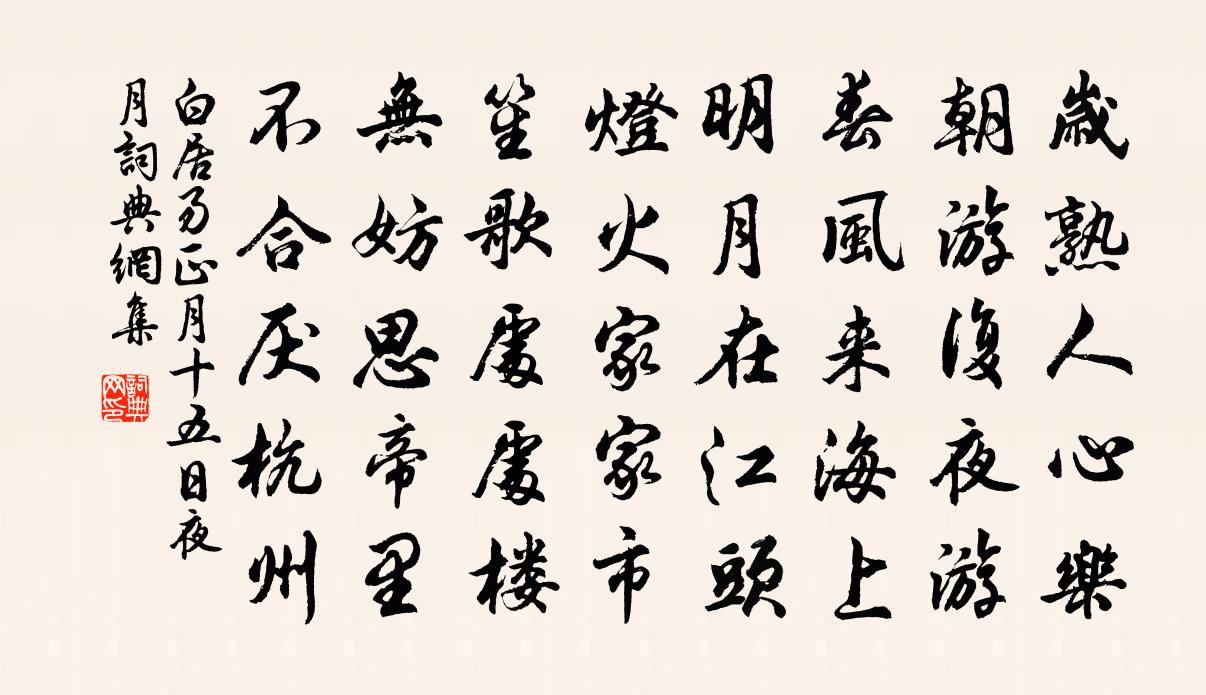 歲熟人心樂
朝游復夜游
春風来海上
明月在江頭
燈火家家市
笙歌處處楼
無妨思帝里
不合厌杭州
白居易正月十五日夜
月詞典網集
詞典
网印